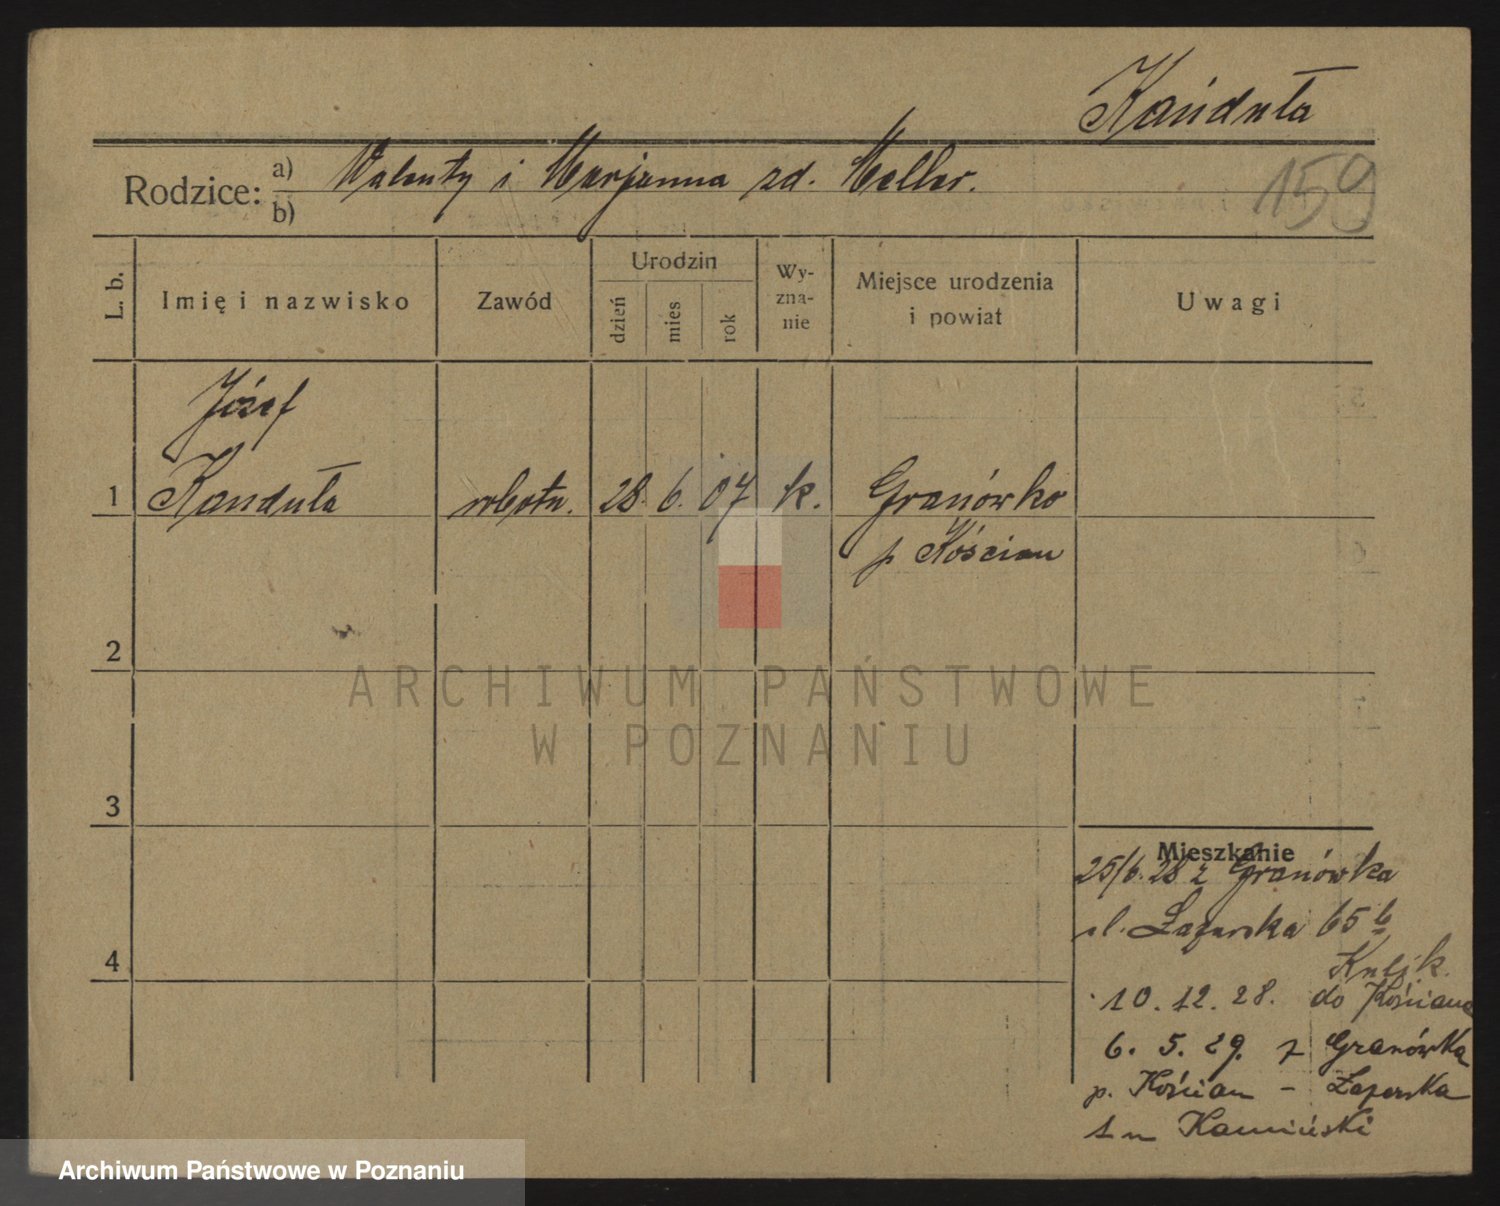 Kańduła
Rodzice: a) Walenty i Marjanna zd. Meller.
b)
159
L. b.
Imię i nazwisko
Zawód
Urodzin
dzień
mies
rok
Wy-
zna-
nie
Miejsce urodzenia
i powiat
Uwagi
Józef
1 Kanduła robotn. 28. 6. 07 k. Granówko
p Kościan
2
3
4
Mieszkanie
25/6. 28 z Granówka
ul. Łazarska 65 b
Kubik.
10. 12. 28. do Kościana
6. 5. 29. z Granówka
p. Kościan - Łazarska
Kamiński
ARCHIWUM PAŃSTWOWE
W POZNANIU
Archiwum Państwowe w Poznaniu